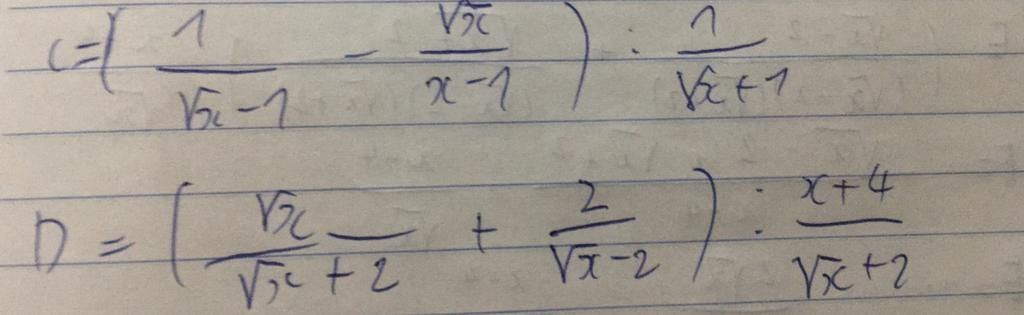 C = ( 1/(√x − 1) − √x/(x − 1) ) : 1/(√x + 1)
D = ( √x/(√x + 2) + 2/(√x − 2) ) : (x + 4)/(√x + 2)